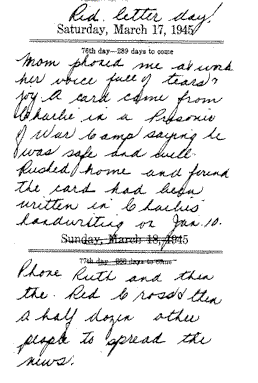 Red letter day!
Saturday, March 17, 1945
76th day—289 days to come
Mom phoned me at work
her voice full of tears?
joy A card came from
Charlie in a Prisonie
of War Camp saying he
was safe and well.
Rushed home and found
the card had been
written in Charlies'
handwriting on Jan. 10.
Sunday, March 18, 1945
77th day—288 days to come
Phone Ruth and then
the Red Cross & then
a half dozen other
people to spread the
news.